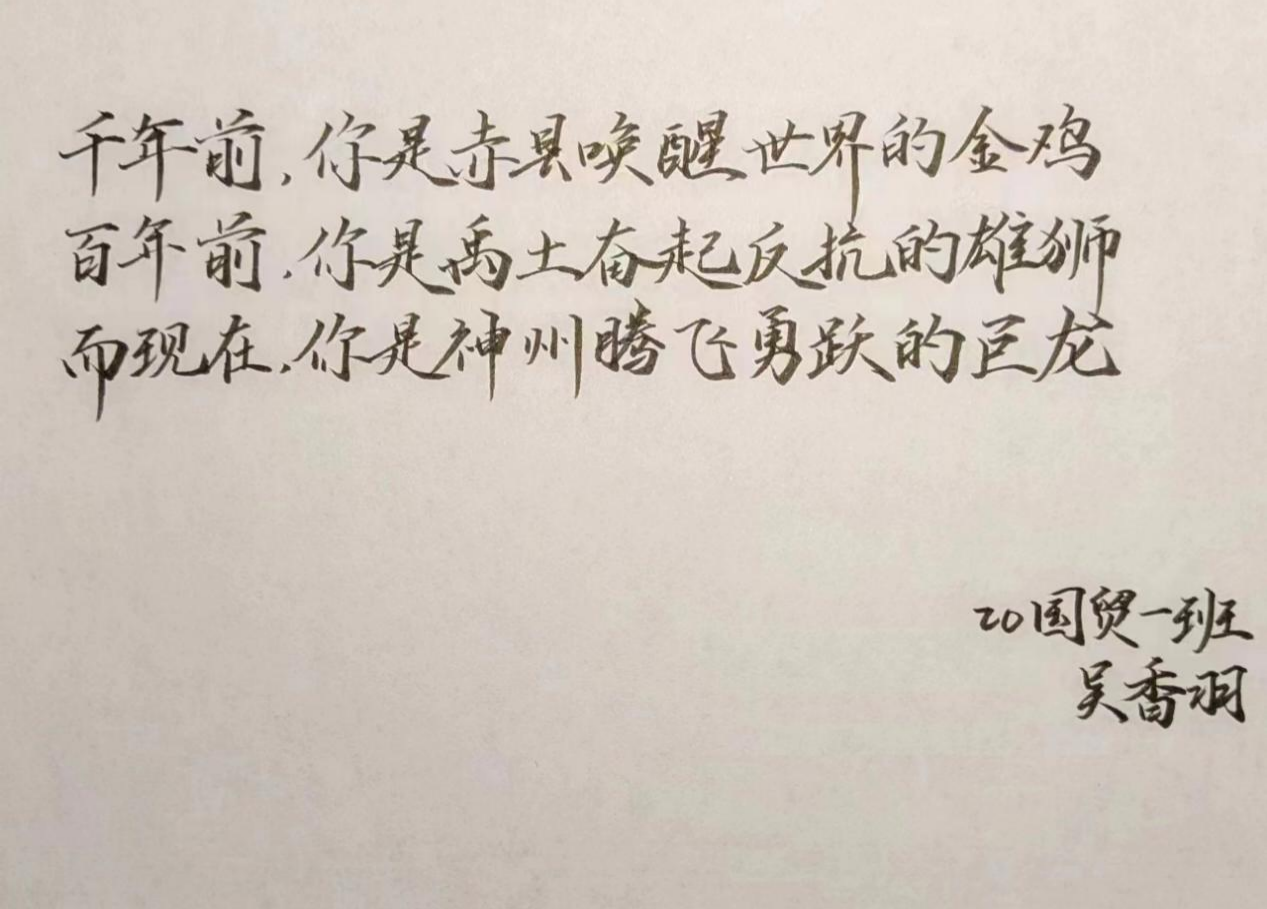 千年前,你是赤县唤醒世界的金鸡
百年前,你是禹土奋起反抗的雄狮
而现在,你是神州腾飞勇跃的巨龙
20国贸一班
吴香羽